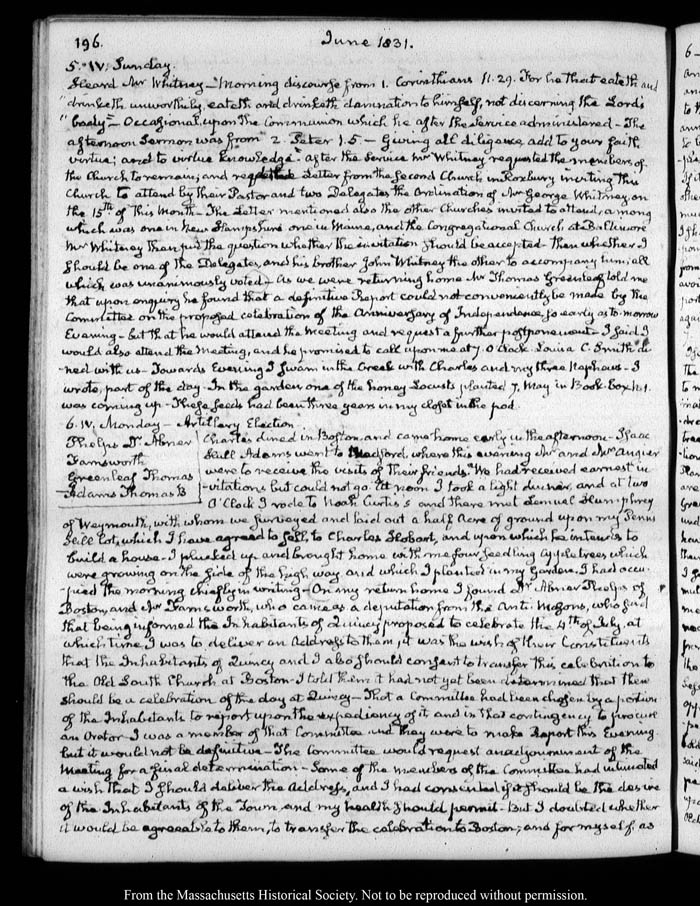 196.
June 1831.
5. IV. Sunday.
Heard Mr Whitney — Morning discourse from 1. Corinthians 11. 29. For he that eateth and
drinketh unworthily, eateth and drinketh damnation to himself, not discerning the Lord's
"body" — Occasional, upon the Communion which he after the Service administered — The
afternoon Sermon was from 2. Peter 1. 5 — Giving all diligence, add to your faith
virtue; and to virtue knowledge. After the Service Mr Whitney requested the members of
the Church to remain; and read a Letter from the Second Church in Roxbury inviting this
Church to attend by their Pastor and two Delegates the Ordination of Mr George Whitney, on
the 15th of this Month — The Letter mentioned also the other Churches invited to attend, among
which was one in New Hampshire one in Maine, and the Congregational Church at Baltimore
Mr Whitney then put the question whether the invitation should be accepted — then whether I
should be one of the Delegates, and his brother John Whitney the other to accompany him; all
which was unanimously voted — As we were returning home Mr Thomas Greenleaf told me
that upon enquiry he found that a definitive Report could not conveniently be made by the
Committee on the proposed celebration of the Anniversary of Independence, so early as to-morrow
Evening — but that he would attend the meeting and request a further postponement — I said I
would also attend the Meeting, and he promised to call upon me at 7. O'Clock. Louisa C. Smith di-
ned with us — Towards Evening I swam in the Creek with Charles and my three Nephews — I
wrote, part of the day. In the garden one of the honey Locusts planted 7. May in Book Box N. 1.
was coming up — These seeds had been three years in my closet in the pod.
6. IV. Monday — Artillery Election
Phelps Dr Abner
Farnsworth
Greenleaf Thomas
Adams Thomas B
Charles dined in Boston, and came home early in the afternoon — Isaac
Hull Adams went to Medford, where this evening Mr and Mrs Angier
were to receive the visits of their friends. We had received earnest in-
-vitations but could not go. At noon I took a light dinner, and at two
O'Clock I rode to Noah Curtis's and there met Lemuel Humphrey
of Weymouth, with whom we surveyed and laid out a half Acre of ground upon my Penns
Hill lot, which I have agreed to sell, to Charles Hobart, and upon which he intends to
build a house — I plucked up and brought home with me four seedling apple trees which
were growing on the side of the high way and which I planted in my Garden. I had occu-
-pied the morning chiefly in writing — On my return home I found Dr Abner Phelps of
Boston, and Mr Farnsworth, who came as a deputation from the Anti-Masons, who said
that being informed the Inhabitants of Quincy proposed to celebrate the 4th of July, at
which time I was to deliver an Address to them, it was the wish of their Constituents
that the Inhabitants of Quincy and I also should consent to transfer this celebration to
the Old South Church at Boston — I told them it had not yet been determined that there
should be a celebration of the day at Quincy — That a Committee had been chosen by a portion
of the Inhabitants to report upon the expediency of it and in that contingency to procure
an Orator — I was a member of that Committee and they were to make Report this Evening
but it would not be definitive — The Committee would request an adjournment of the
Meeting for a final determination — Some of the members of the Committee had intimated
a wish that I should deliver the Address, and I had consented if it should be the desire
of the Inhabitants of the Town, and my health should permit — But I doubted whether
it would be agreeable to them, to transfer the celebration to Boston; and for myself, as
From the Massachusetts Historical Society. Not to be reproduced without permission.